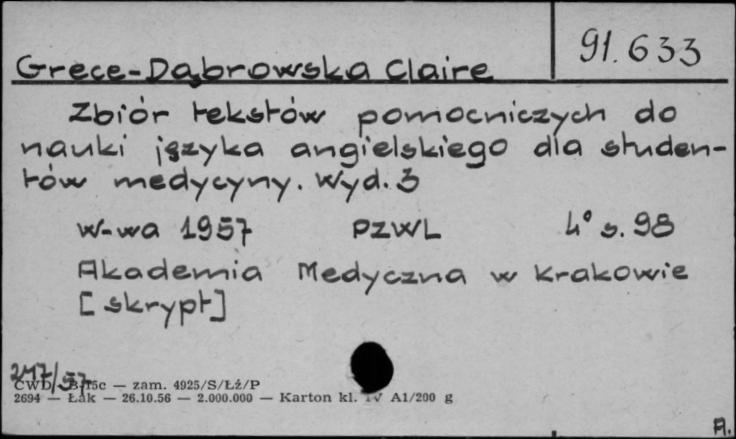 91.633
Grece-Dąbrowska Claire
Zbiór tekstów pomocniczych do
nauki języka angielskiego dla studen-
tów medycyny. Wyd. 3
W-wa 1957 PZWL 4° s. 98
Akademia Medyczna w Krakowie
[skrypt]
217/57
CWD — zam. 4925/S/Łź/P
2694 — Łák — 26.10.56 — 2.000.000 — Karton kl. IV A1/200 g
A.